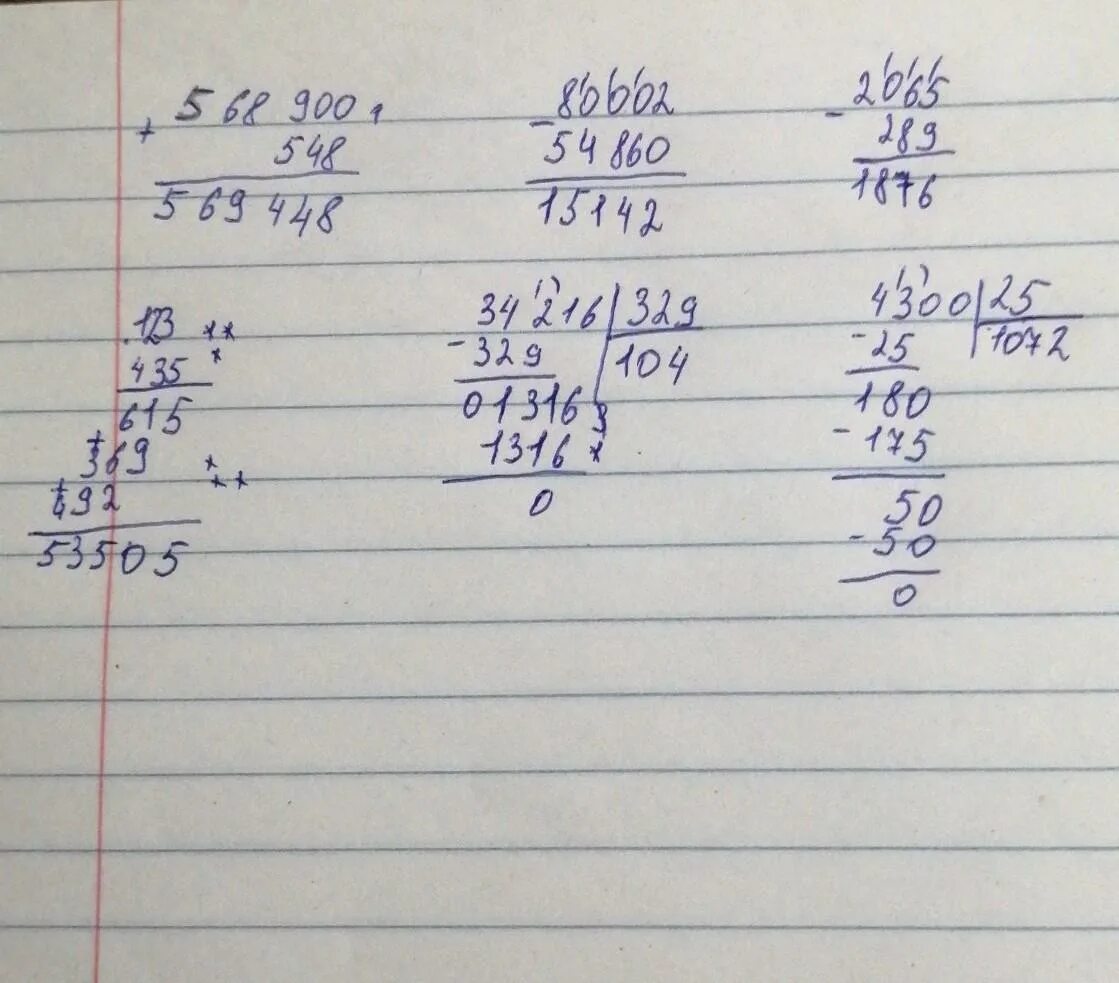 + 568 900
548
569 448
- 80002
54 860
15142
- 2065
289
1876
123
435
615
+ 369
+ 492
53505
34 216 | 329
- 329 | 104
01316
1316
0
4300 | 25
- 25 | 1072
180
- 175
50
- 50
0